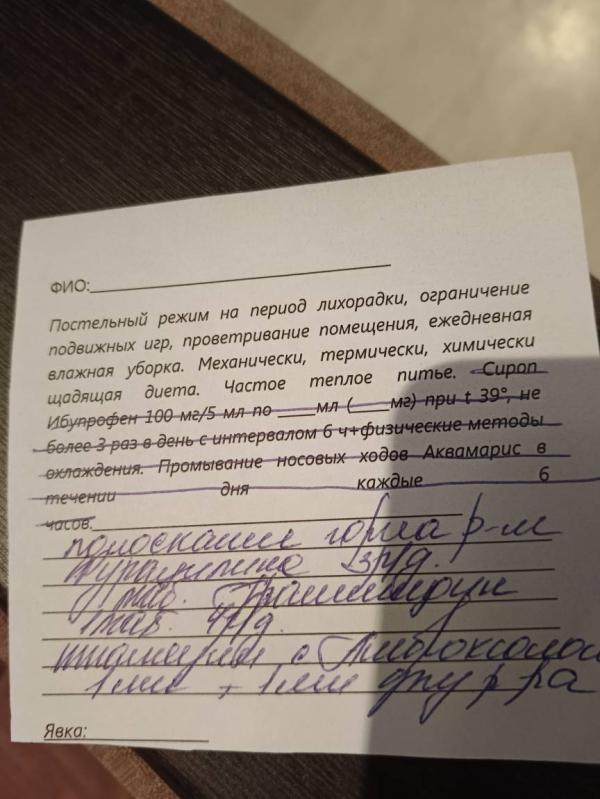 ФИО:
Постельный режим на период лихорадки, ограничение
подвижных игр, проветривание помещения, ежедневная
влажная уборка. Механически, термически, химически
щадящая диета. Частое теплое питье. Сироп
Ибупрофен 100 мг/5 мл по ____мл (____мг) при t 39°, не
более 3 раз в день с интервалом 6 ч+физические методы
охлаждения. Промывание носовых ходов Аквамарис в
течении дня каждые 6
часов.
полоскание горла р-м
3р/д.
таб.
1 таб. 4р/д.
с Амброксолом
1 мл + 1 мл физ р-ра
Явка: